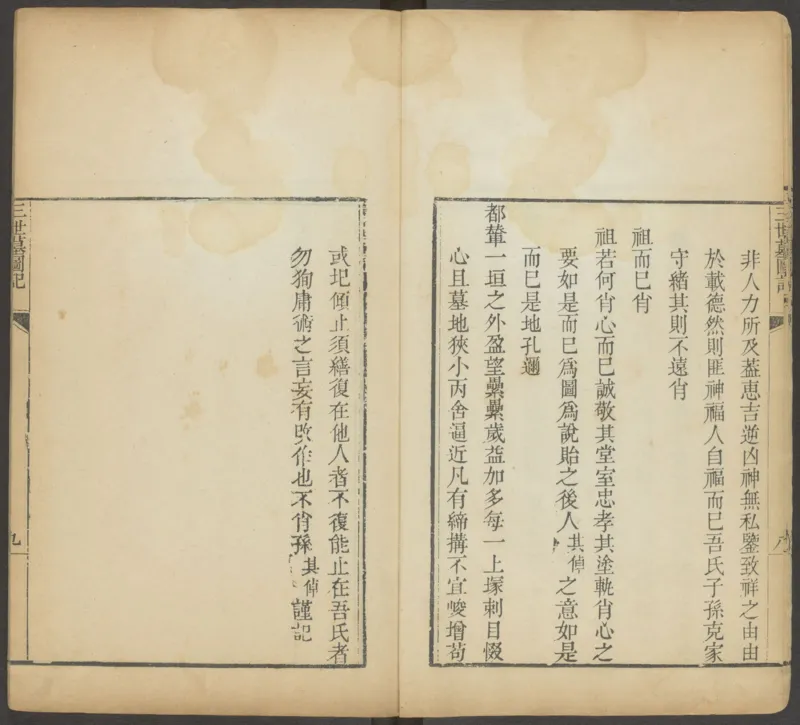 三世墓圖記
非人力所及葢惠吉逆凶神無私鑒致祥之由由
於載德然則匪神福人自福而已吾氏子孫克家
守緒其則不遠肖
祖而已肖
祖若何肖心而已誠敬其堂室忠孝其塗軌肖心之
要如是而已爲圖爲說貽之後人其倬之意如是
而已是地孔邇
都輦一垣之外盈望纍纍歲益加多每一上塚刺目惙
心且墓地狹小丙舍逼近凡有締搆不宜峻增苟
或圮傾止須繕復在他人者不復能止在吾氏者
勿狥庸術之言妄有改作也不肖孫其倬謹記
三世墓圖記
九